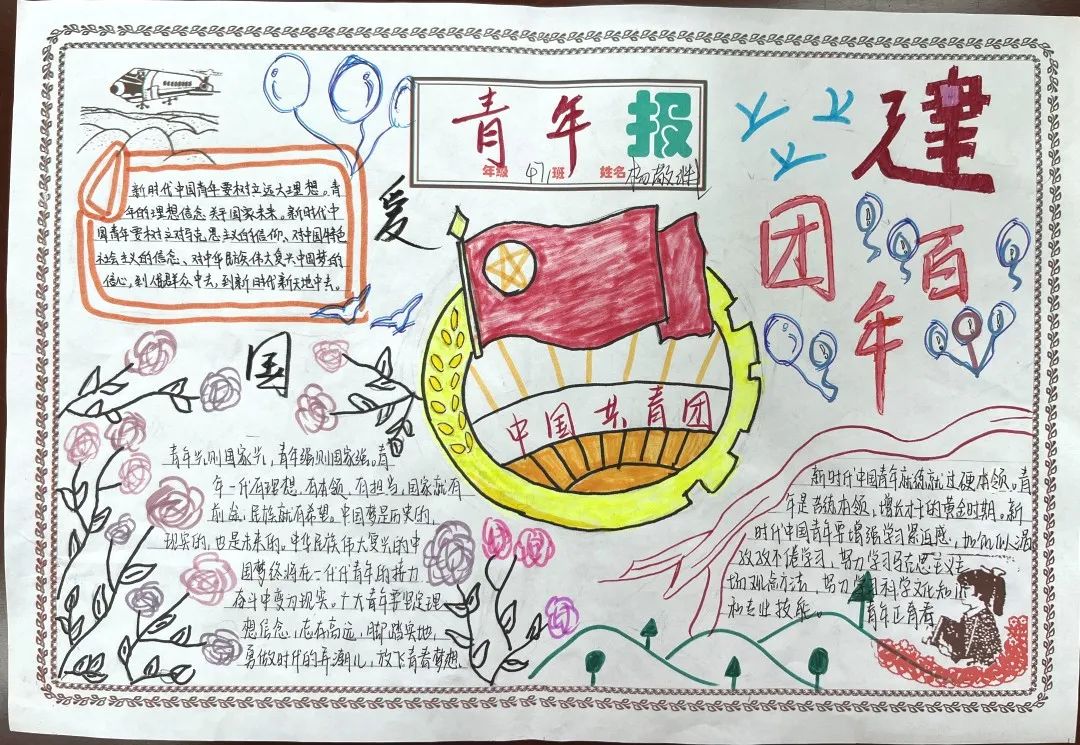 青年报
年级 471班 姓名 杨
建
团 百
年
爱
国
新时代中国青年要树立远大理想。青
年的理想信念关乎国家未来。新时代中
国青年要树立对马克思主义的信仰、对中国特色
社会主义的信念、对中华民族伟大复兴中国梦的
信心,到人民群众中去,到新时代新天地中去。
中国共青团
青年兴则国家兴,青年强则国家强。青
年一代有理想,有本领,有担当,国家就有
前途,民族就有希望。中国梦是历史的,
现实的,也是未来的。中华民族伟大复兴的中
国梦终将在一代代青年的接力
奋斗中变为现实。广大青年要坚定理
想信念,志存高远,脚踏实地,
勇做时代的弄潮儿,放飞青春梦想
新时代中国青年就练就过硬本领。青
年是苦练本领,增长才干的黄金时期。新
时代中国青年要增强学习紧迫感,如饥似渴
孜孜不倦学习,努力学习马克思主义
的观点方法,努力学习科学文化知识
和专业技能。 青年正青春